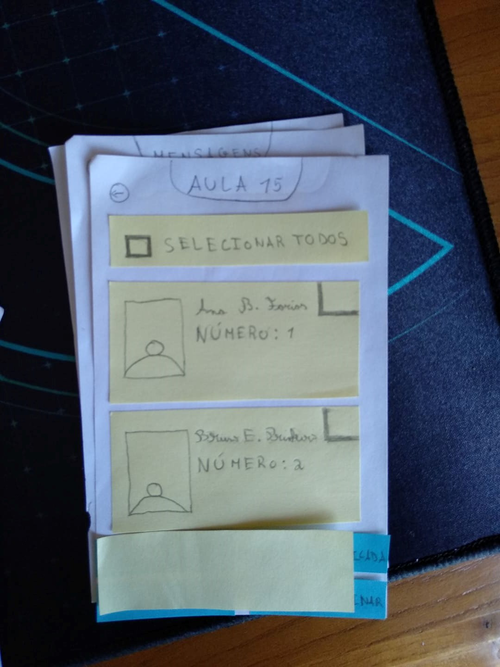 MENSAGENS
AULA 15
SELECIONAR TODOS
Ana B. Farias
NÚMERO: 1
Bruno E.
NÚMERO: 2